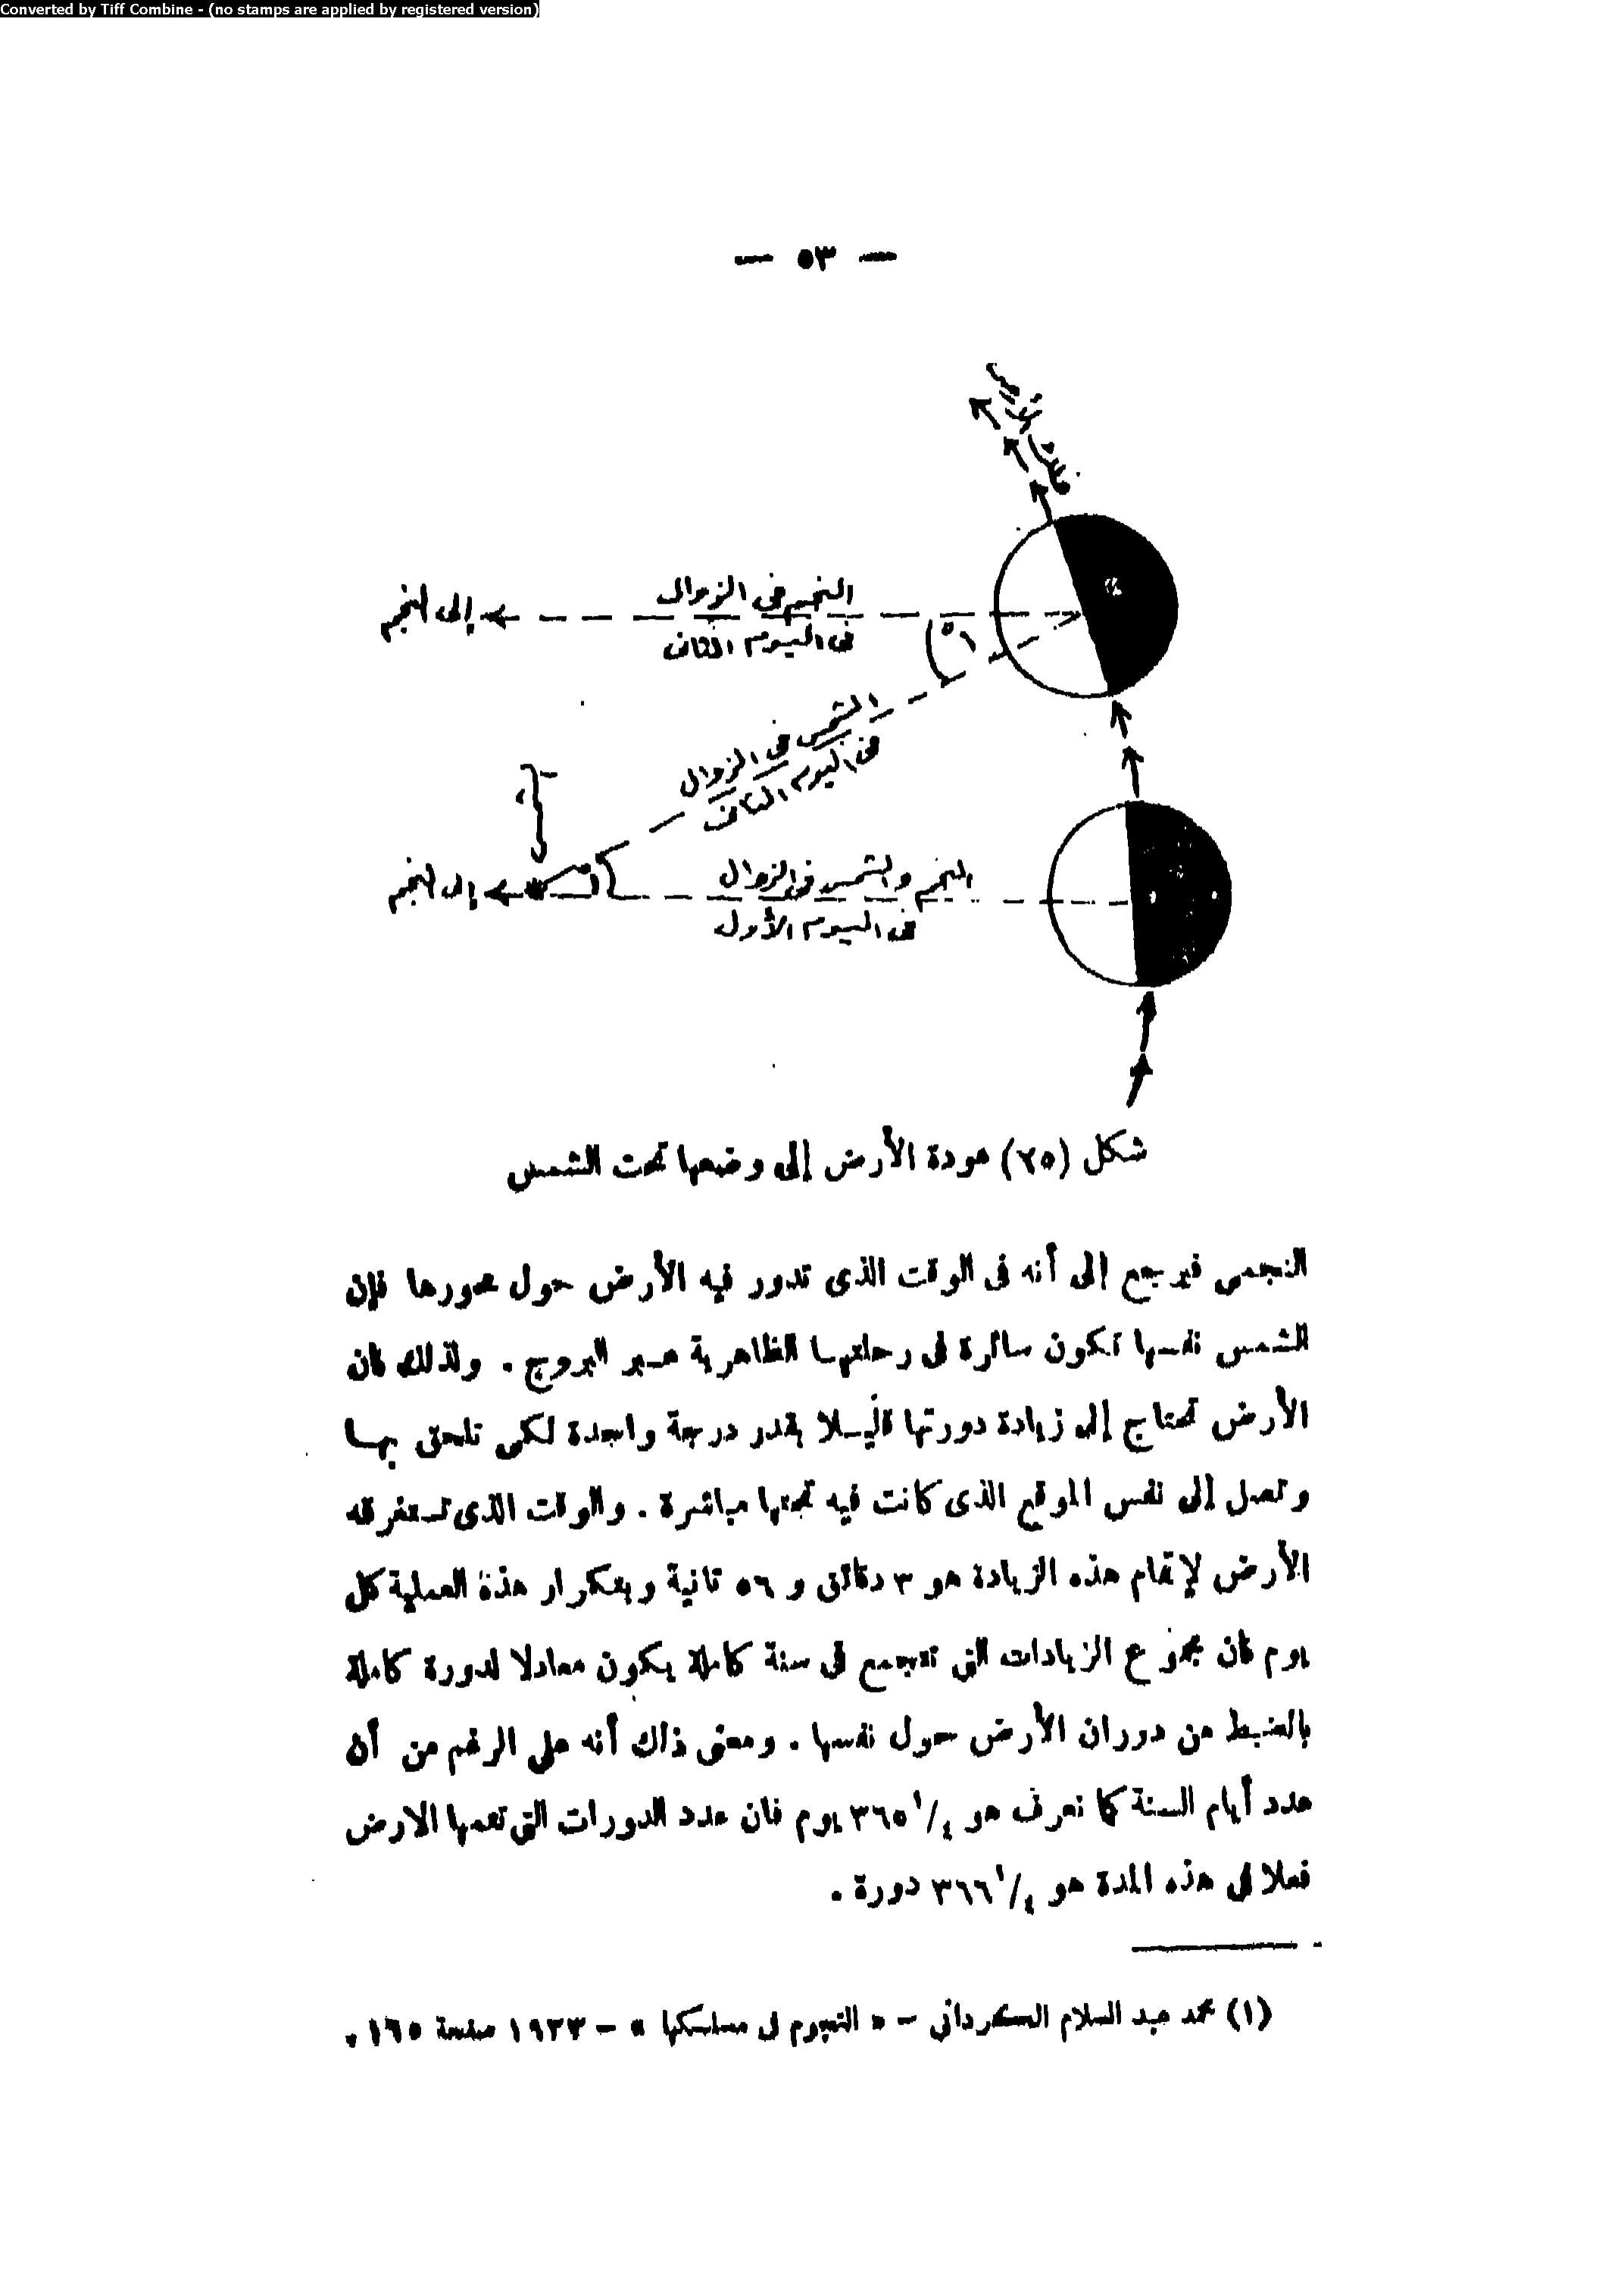 Converted by Tiff Combine - (no stamps are applied by registered version)
— ٥٣ —
النجم في الزوال
في اليوم الثاني
إلى النجم
°١
الشمس في الزوال
في اليوم الثاني
النجم والشمس في الزوال
في اليوم الأول
إلى النجم
شكل (٢٥) عودة الأرض إلى وضعها تحت الشمس
النجمى فيرجع إلى أنه فى الوقت الذى تدور فيه الأرض حول محورها فإن
الشمس نفسها تكون سائرة فى رحلتها الظاهرية عبر البروج . ولذلك فان
الأرض تحتاج إلى زيادة دورتها قليلا بقدر درجة واحدة لكى تلحق بها
وتصل إلى نفس الموقع الذى كانت فيه تحتها مباشرة . والوقت الذى تستغرقه
الأرض لإتمام هذه الزيادة هو ٣ دقائق و ٥٦ ثانية وبتكرار هذة العملية كل
يوم فان مجموع الزيادات التى تتجمع فى سنة كاملة يكون معادلا لدورة كاملة
بالضبط من دوران الأرض حول نفسها . ومعنى ذلك أنه على الرغم من أن
عدد أيام السنة كما نعرف هو ١/٤ ٣٦٥ يوم فان عدد الدورات التى تتمها الارض
فعلا فى هذه المدة هو ١/٤ ٣٦٦ دورة .
(١) محمد عبد السلام الكردانى – « النجوم فى مسالكها » – ١٩٣٣ صفحة ١٦٥ .